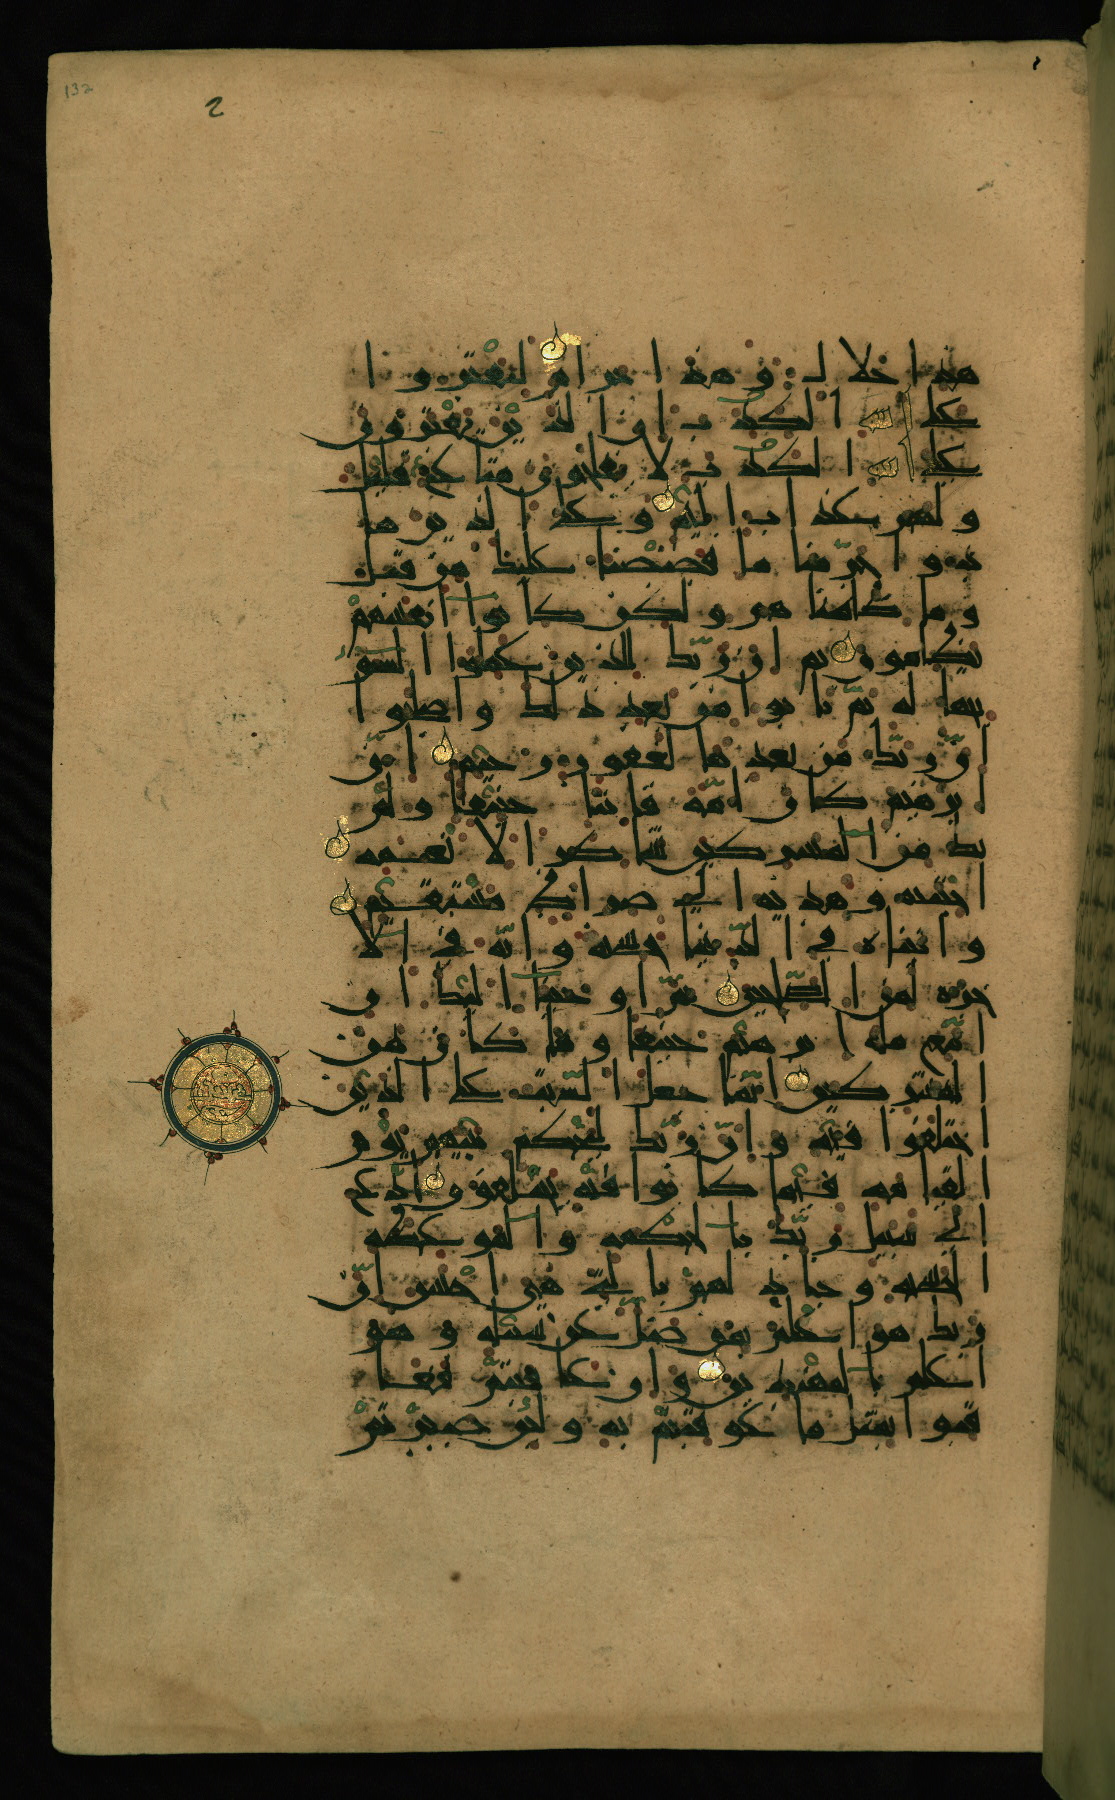 132
2
هذا حلال وهذا حرام لتفتروا
على الله الكذب ان الذين يفترون
على الله الكذب لا يفلحون متاع قليل
ولهم عذاب اليم وعلى الذين ها
دوا حرمنا ما قصصنا عليك من قبل
وما ظلمنا هم ولكن كانوا انفسهم
يظلمون ثم ان ربك للذين عملوا السو
بجهاله ثم تابوا من بعد ذلك واصلحوا
ان ربك من بعدها لغفور رحيم ان
ابرهيم كان امة قانتا حنيفا ولم
يك من المشركين شاكرا لانعمه
اجتبيه وهديه الى صراط مستقيم
واتيناه في الدنيا حسنه وانه في الا
خره لمن الصلحين ثم اوحينا اليك ان
اتبع مله ابرهيم حنيفا وما كان من
المشركين انما جعل السبت على الذين
اختلفوا فيه وان ربك ليحكم بينهم يوم
القيامه فيما كانوا فيه يختلفون ادع
الى سبيل ربك بالحكمه والموعظه
الحسنه وجادلهم بالتي هي احسن ان
ربك هو اعلم بمن ضل عن سبيله وهو
اعلم بالمهتدين وان عاقبتم فعا
قبوا بمثل ما عوقبتم به ولئن صبرتم